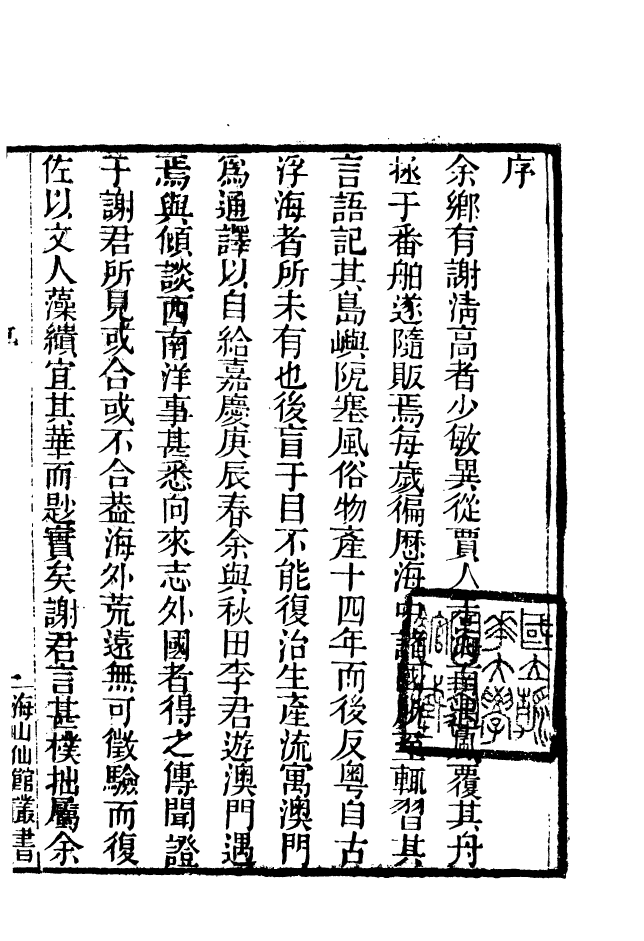 序
余鄉有謝清高者少敏異從賈人走海南遇風覆其舟
拯于番舶遂隨販焉每歲徧歷海中諸國所至輒習其
言語記其島嶼阨塞風俗物產十四年而後反粵自古
浮海者所未有也後盲于目不能復治生產流寓澳門
爲通譯以自給嘉慶庚辰春余與秋田李君遊澳門遇
焉與傾談西南洋事甚悉向來志外國者得之傳聞證
于謝君所見或合或不合葢海外荒遠無可徵驗而復
佐以文人藻繢宜其華而尠實矣謝君言甚樸拙屬余
海山仙館叢書
國立
大學